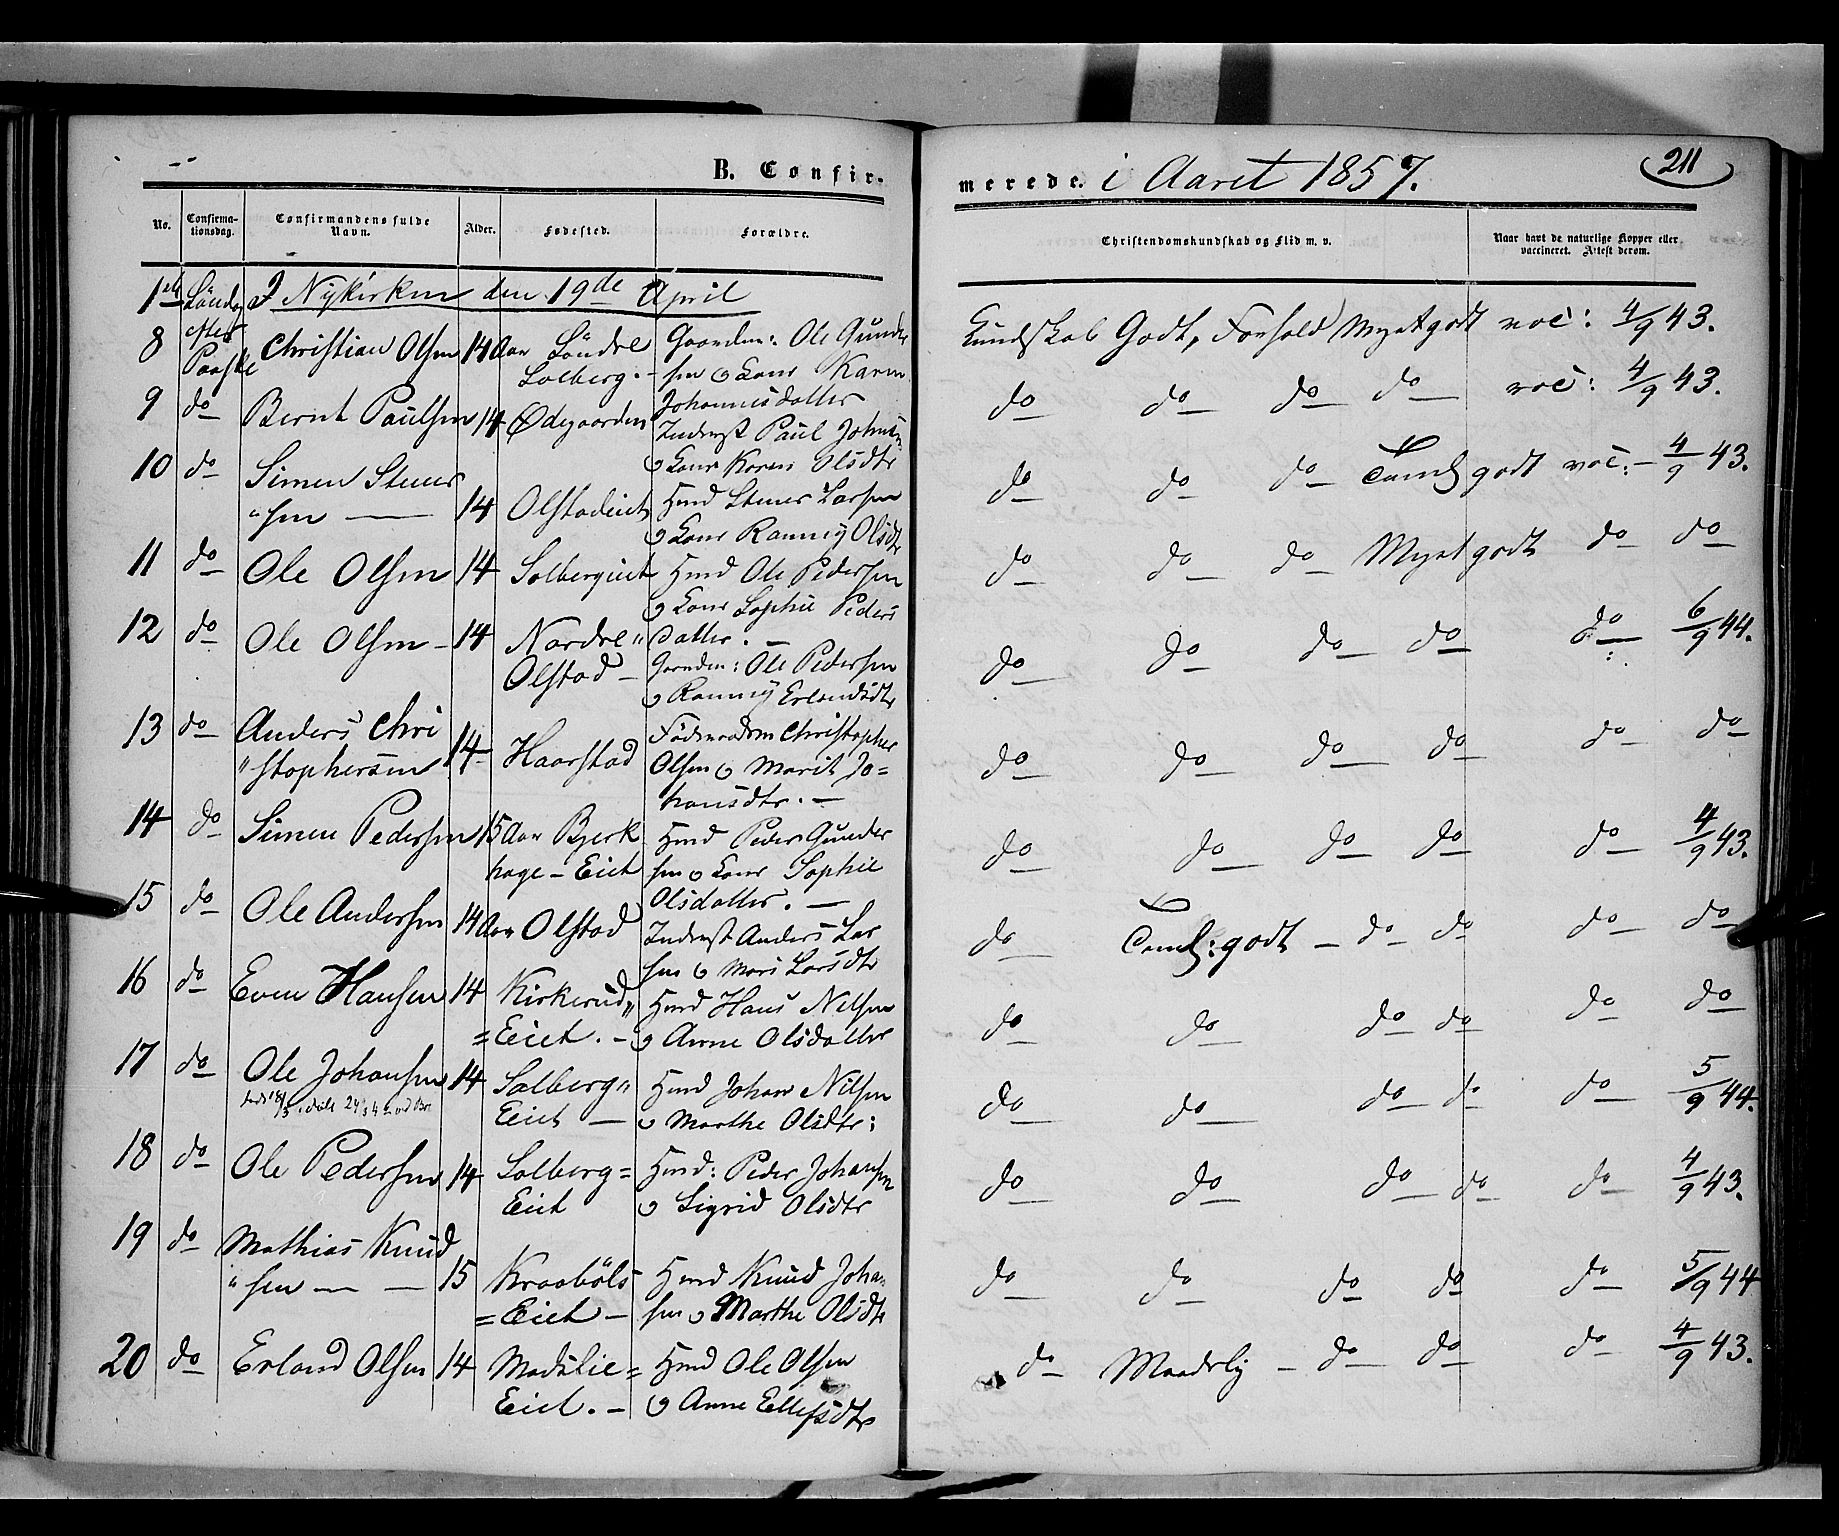 B. Confir-
merede. i Aaret 1857.
211
No.
Confirma-
tionsdag.
Confirmandens fulde
Navn.
Alder.
Fødested.
Forældre.
Christendomskundskab og Flid m. v.
Naar havt de naturlige Kopper eller
vaccineret. Attest derom.
1ste Søndag I Nykirken den 19de April
efter
Paaske
8 Christian Olsen 14 Aar Søndre
Solberg. -
Gaardm: Ole Gunder
sen o Kone Karen
Johannesdatter
Kundskab Godt, Forhold Meget godt vac: 4/9 43.
9 do Bernt Paulsen 14 Ødegaarden
Inderst Paul Johnsen
o Kone Karen Olsdtr
do do do do vac: 4/9 43.
10 do Simen Stener
"sen — 14 Olstadeiet
Hmd Stener Larsen
o Kone Ranny Olsdtr
do do do Taml godt vac: - 4/9 43.
11 do Ole Olsen 14 Solbergeiet
Hmd Ole Pedersen
o Kone Sophie Peders
datter. -
do do do Meget godt do do
12 do Ole Olsen - 14 Nordre"
Olstad -
Gaardm: Ole Pedersen
o Ranny Erlandsdtr
do do do do do 6/9 44.
13 do Anders Chri
"stophersen 14 Haarstad
Föderaadsm Christopher
Olsen o Marit Jo=
hansdtr. -
do do do do do do
14 do Simen Pedersen 15 Aar Bjerk
hage - Eiet
Hmd Peder Gunder
sen o Kone Sophie
Olsdatter. -
do do do do do 4/9 43.
15 do Ole Andersen 14 Aar Olstad
Inderst Anders Lar
sen o Mari Larsdtr
do Taml: godt - do do do do
16 do Even Hansen 14 Kirkerud"
=Eiet. -
Hmd Hans Nilsen
o Anne Olsdatter
do do do do do do
17 do Ole Johansen 14 Solberg"
Eiet -
Hmd Johan Nilsen
o Marthe Olsdtr:
do do do do do 5/9 44.
18 do Ole Pedersen 14 Solberg=
Eiet
Hmd: Peder Johansen
o Sigrid Olsdtr
do do do do do 4/9 43.
19 do Mathias Knud
"sen — — 15 Kraabøls
=Eiet -
Hmd Knud Johan
sen o Marthe Olsdtr
do do do do do 5/9 44
20 do Erland Olsen 14 Madslie=
Eiet. -
Hmd Ole Olsen
o Anne Ellefsdtr
do Maadelig - do do do 4/9 43.